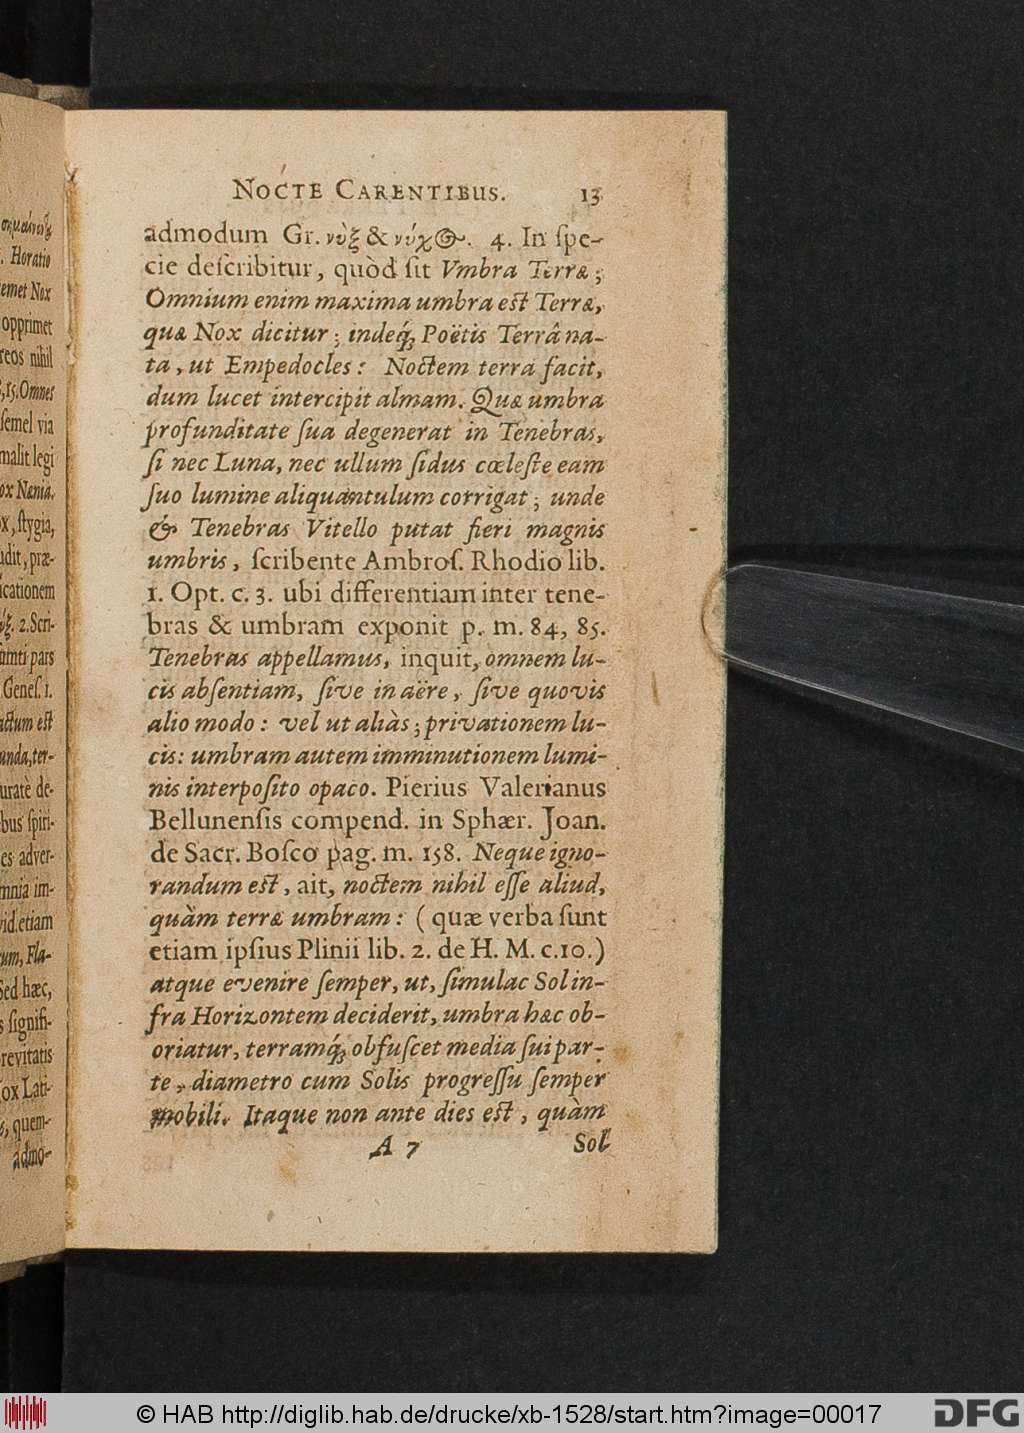 σημαίνει
. Horatio
emet Nox
opprimet
reos nihil
,15. Omnes
semel via
malit legi
ox Nænia,
x, stygia,
udit, præ-
icationem
νύξ. 2. Scri-
umti pars
Genes. 1.
actum est
unda, ter-
uratè de-
bus spiri-
es adver-
mnia im-
vid. etiam
um, Fla-
Sed hæc,
s signifi-
revitatis
ox Lati-
s, quem-
admo-
NOCTE CARENTIBUS. 13
admodum Gr. νὺξ & νύχος. 4. In spe-
cie describitur, quòd sit Vmbra Terræ;
Omnium enim maxima umbra est Terræ,
quæ Nox dicitur; indeq́; Poëtis Terrâ na-
ta, ut Empedocles: Noctem terra facit,
dum lucet intercipit almam. Quæ umbra
profunditate sua degenerat in Tenebras,
si nec Luna, nec ullum sidus cœleste eam
suo lumine aliquantulum corrigat; unde
& Tenebras Vitello putat fieri magnis
umbris, scribente Ambros. Rhodio lib.
1. Opt. c. 3. ubi differentiam inter tene-
bras & umbram exponit p. m. 84, 85.
Tenebras appellamus, inquit, omnem lu-
cis absentiam, sive in aëre, sive quovis
alio modo: vel ut aliàs; privationem lu-
cis: umbram autem imminutionem lumi-
nis interposito opaco. Pierius Valerianus
Bellunensis compend. in Sphær. Joan.
de Sacr. Bosco pag. m. 158. Neque igno-
randum est, ait, noctem nihil esse aliud,
quàm terræ umbram: (quæ verba sunt
etiam ipsius Plinii lib. 2. de H. M. c.10.)
atque evenire semper, ut, simulac Sol in-
fra Horizontem deciderit, umbra hæc ob-
oriatur, terramq́; obfuscet media sui par-
te, diametro cum Solis progressu semper
mobili. Itaque non ante dies est, quàm
A 7 Sol
© HAB http://diglib.hab.de/drucke/xb-1528/start.htm?image=00017
DFG